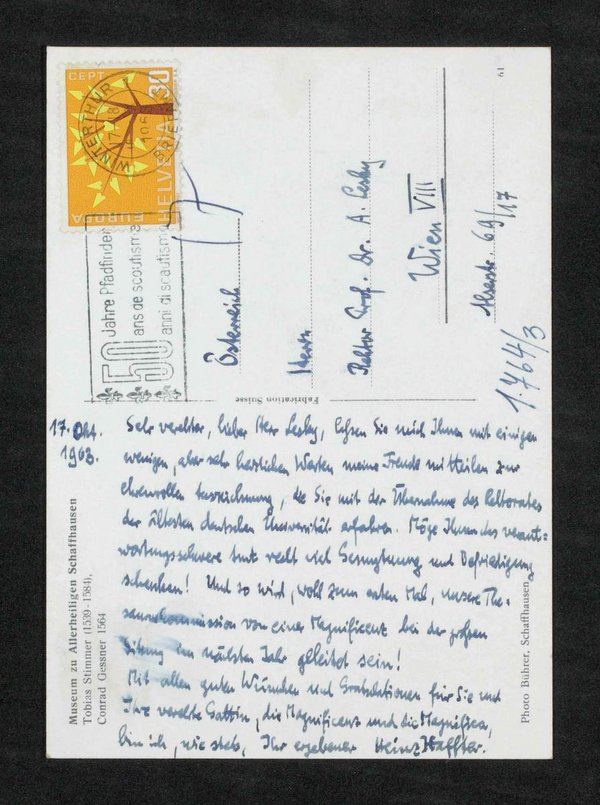 CEPT
EUROPA
HELVETIA
30
WINTERTHUR
BRIEFV
50 Jahre Pfadfinder
ans de scoutisme
anni di scautismo
61
Österreich
Herrn
Rektor Prof. Dr. A. Lesky
Wien VIII
Alserstr. 69/17
1.764/3
Fabrication Suisse
17. Okt.
1963.
Sehr verehrter, lieber Herr Lesky, lassen Sie mich Ihnen mit einigen
wenigen, aber sehr herzlichen Worten meine Freude mitteilen zur
ehrenvollen Auszeichnung, die Sie mit der Übernahme des Rektorates
der ältesten deutschen Universität erfahren. Möge Ihnen das verant=
wortungsschwere Amt recht viel Genugtuung und Befriedigung
schenken! Und so wird, wohl zum ersten Mal, unsere The-
sauruskommission von einer Magnifizenz bei der großen
Sitzung im nächsten Jahr geleitet sein!
Mit allen guten Wünschen und Gratulationen für Sie und
Ihre verehrte Gattin, die Magnifizenz und die Magnifica,
bin ich, wie stets, Ihr ergebener Heinz Haffter.
Museum zu Allerheiligen Schaffhausen
Tobias Stimmer (1539-1584),
Conrad Gessner 1564
Photo Bührer, Schaffhausen